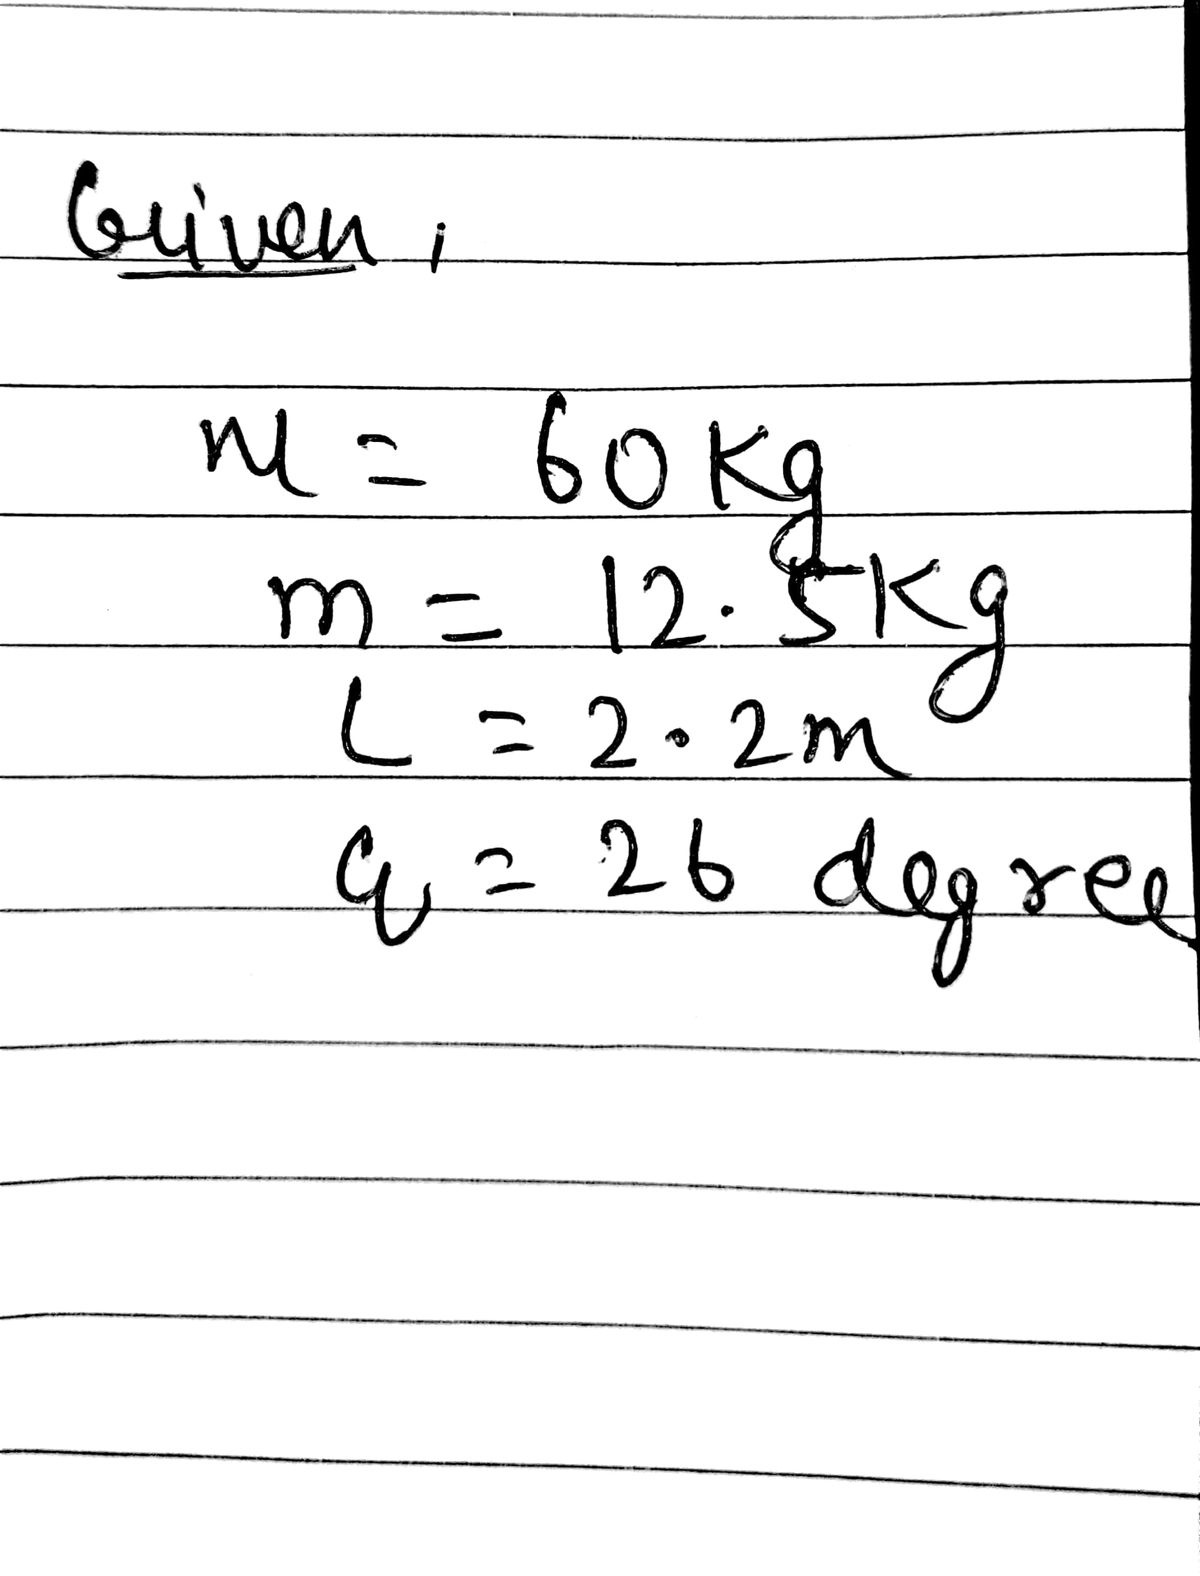 Given,
M = 60 Kg
m = 12.5 Kg
L = 2.2 m
q = 26 degree